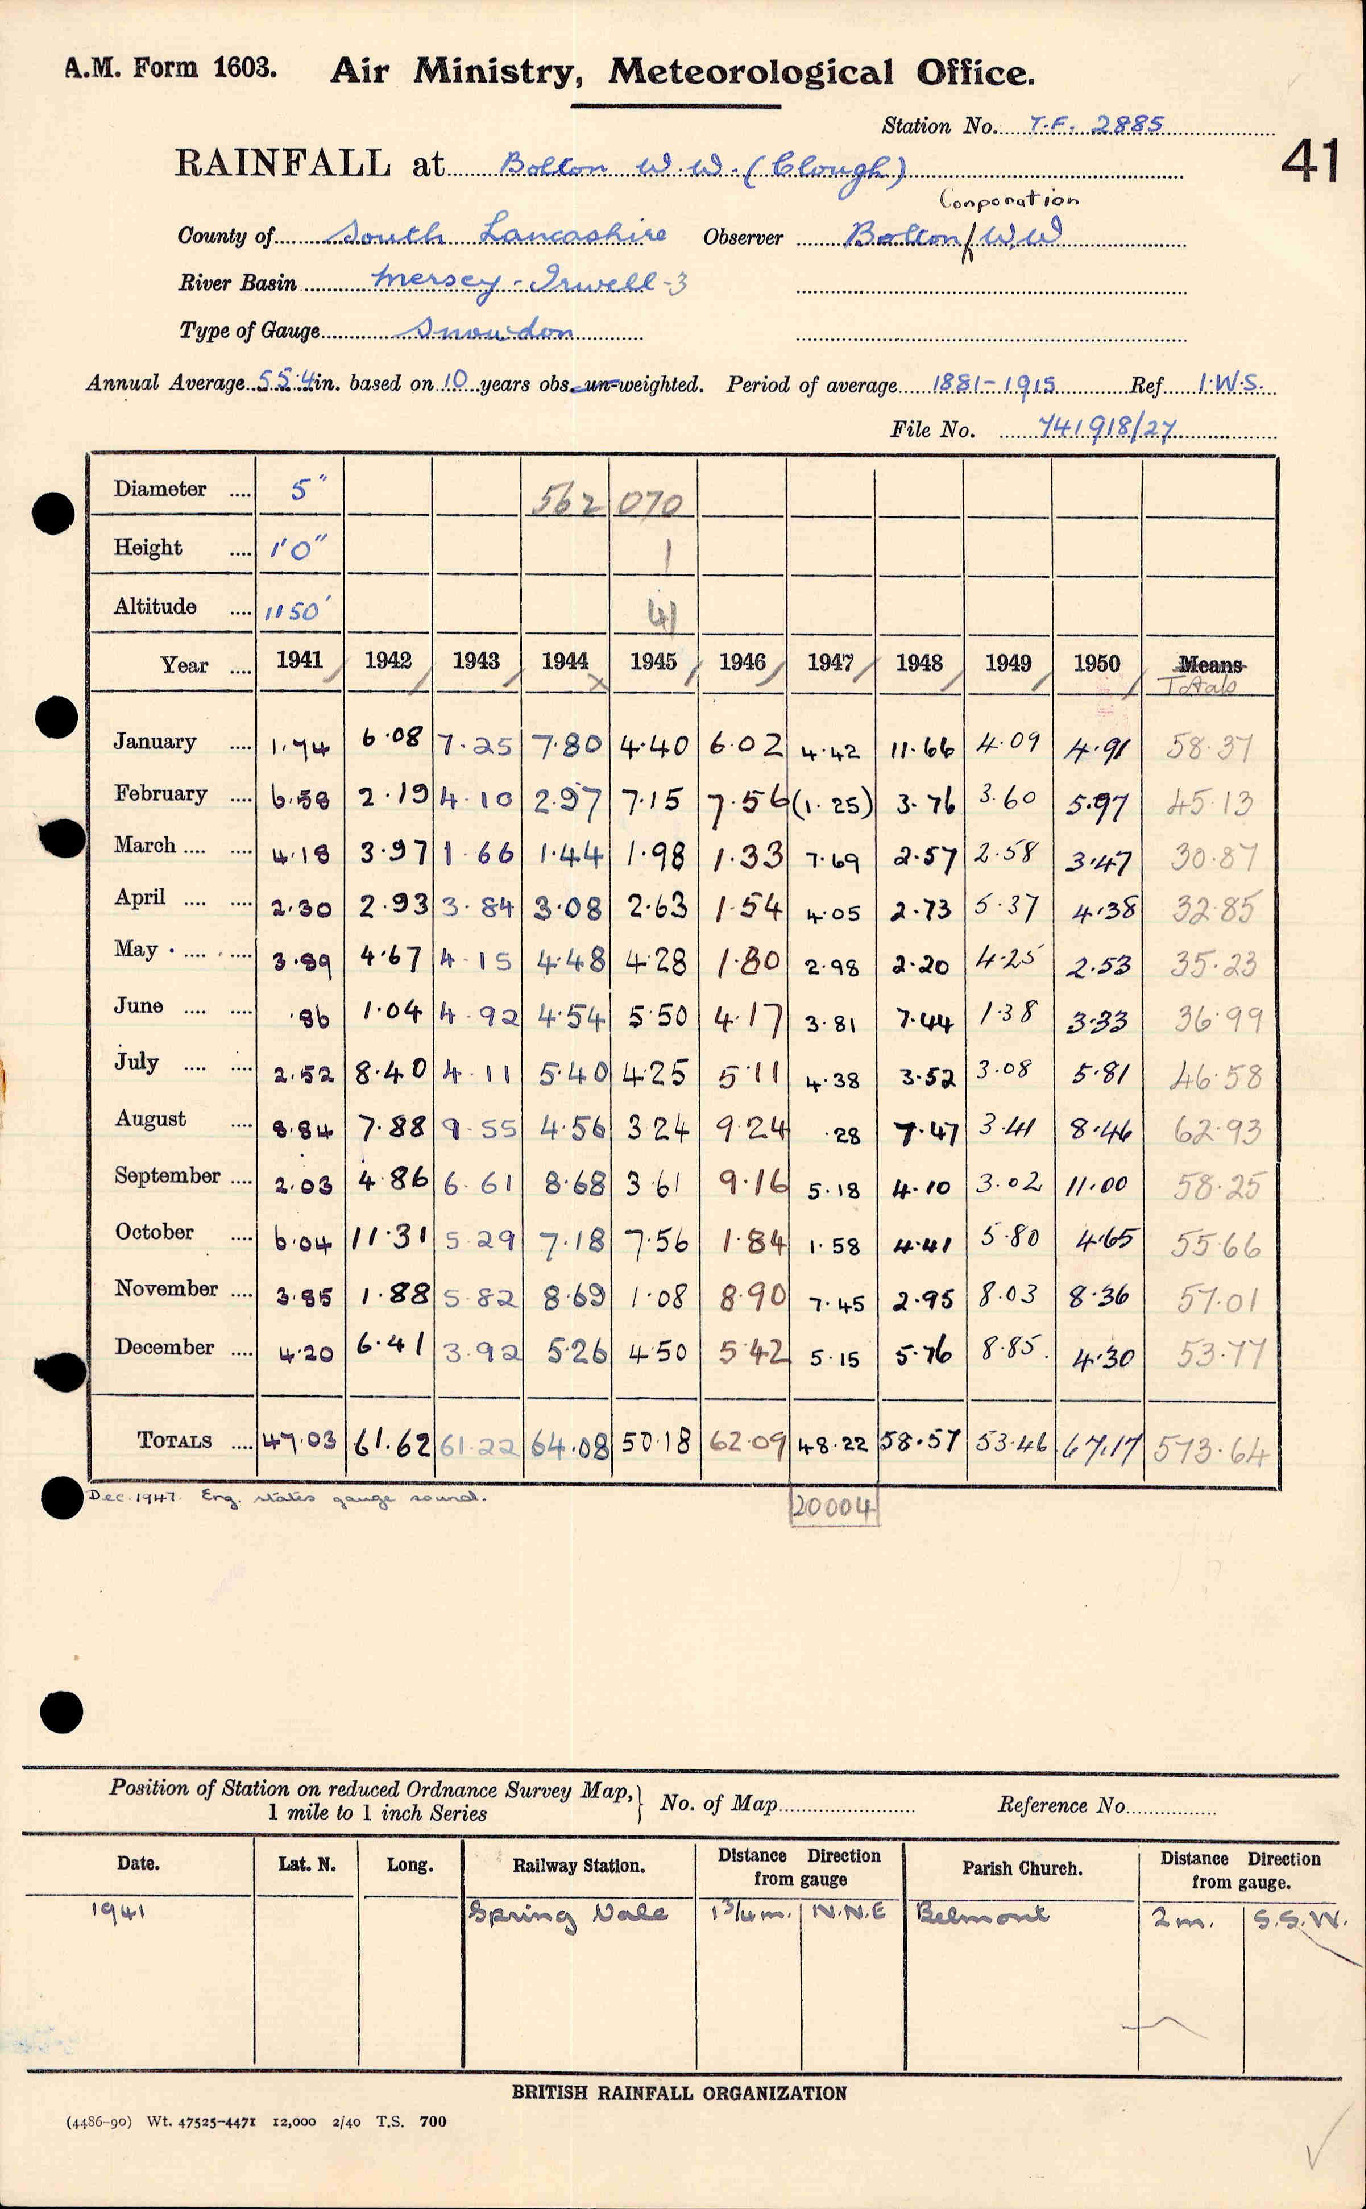 A.M. Form 1603. Air Ministry, Meteorological Office.
Station No. T.F. 2885
41
RAINFALL at Bolton W.W. (Clough)
Corporation
County of South Lancashire Observer Bolton / W.W
River Basin Mersey - Irwell - 3
Type of Gauge Snowdon
Annual Average 55.4 in. based on 10 years obs. un-weighted. Period of average 1881-1915 Ref I.W.S.
File No. 741918/27
Diameter .... 5" 562 070
Height .... 1'0" 1
Altitude .... 1150' 41
Year .... 1941 1942 1943 1944 1945 1946 1947 1948 1949 1950 Means
Totals
January .... 1.74 6.08 7.25 7.80 4.40 6.02 4.42 11.66 4.09 4.91 58.37
February .... 6.58 2.19 4.10 2.97 7.15 7.56 (1.25) 3.76 3.60 5.97 45.13
March .... .... 4.18 3.97 1.66 1.44 1.98 1.33 7.69 2.57 2.58 3.47 30.87
April .... .... 2.30 2.93 3.84 3.08 2.63 1.54 4.05 2.73 5.37 4.38 32.85
May .... .... 3.89 4.67 4.15 4.48 4.28 1.80 2.98 2.20 4.25 2.53 35.23
June .... .... .86 1.04 4.92 4.54 5.50 4.17 3.81 7.44 1.38 3.33 36.99
July .... .... 2.52 8.40 4.11 5.40 4.25 5.11 4.38 3.52 3.08 5.81 46.58
August .... 8.84 7.88 9.55 4.56 3.24 9.24 .28 7.47 3.41 8.46 62.93
September .... 2.03 4.86 6.61 8.68 3.61 9.16 5.18 4.10 3.02 11.00 58.25
October .... 6.04 11.31 5.29 7.18 7.56 1.84 1.58 4.41 5.80 4.65 55.66
November .... 3.85 1.88 5.82 8.69 1.08 8.90 7.45 2.95 8.03 8.36 57.01
December .... 4.20 6.41 3.92 5.26 4.50 5.42 5.15 5.76 8.85 4.30 53.77
TOTALS .... 47.03 61.62 61.22 64.08 50.18 62.09 48.22 58.57 53.46 67.17 573.64
Dec. 1947 Eng. states gauge sound.
20004
Position of Station on reduced Ordnance Survey Map, 1 mile to 1 inch Series } No. of Map Reference No.
Date. Lat. N. Long. Railway Station. Distance Direction from gauge Parish Church. Distance Direction from gauge.
1941 Spring Vale 1 3/4 m. N.N.E Belmont 2 m. S.S.W.
BRITISH RAINFALL ORGANIZATION
(4486-90) Wt. 47525-4471 12,000 2/40 T.S. 700